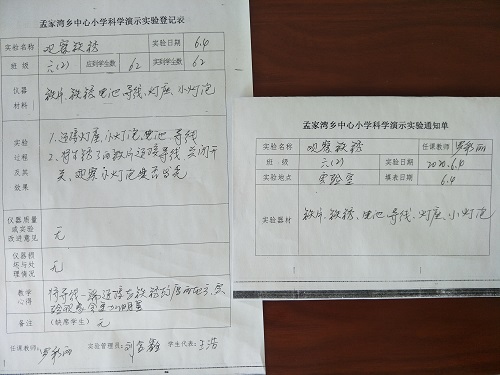 孟家湾乡中心小学科学演示实验登记表
实验名称 观察铁锈 实验日期 6.4
班 级 六(2) 应到学生数 62 实到学生数 62
仪器材料 铁片、铁锈、电池、导线、灯座、小灯泡
实验过程及其效果
1.连接灯座、小灯泡、电池、导线
2.将生锈了的铁片连接导线,关闭开
关,观察小灯泡是否发亮
仪器质量或实验改进意见 无
仪器损坏与处理情况 无
教学心得 将导线一端连接在铁锈较厚的地方,实
验现象会更加明显
备注 (缺席学生) 无
任课教师: 罗彩丽 实验管理员: 学生代表: 王浩
孟家湾乡中心小学科学演示实验通知单
实验名称 观察铁锈 任课教师 罗彩丽
班 级 六(2) 实验日期 2020.6.4
实验地点 实验室 填表日期 6.4
实验器材 铁片、铁锈、电池、导线、灯座、小灯泡